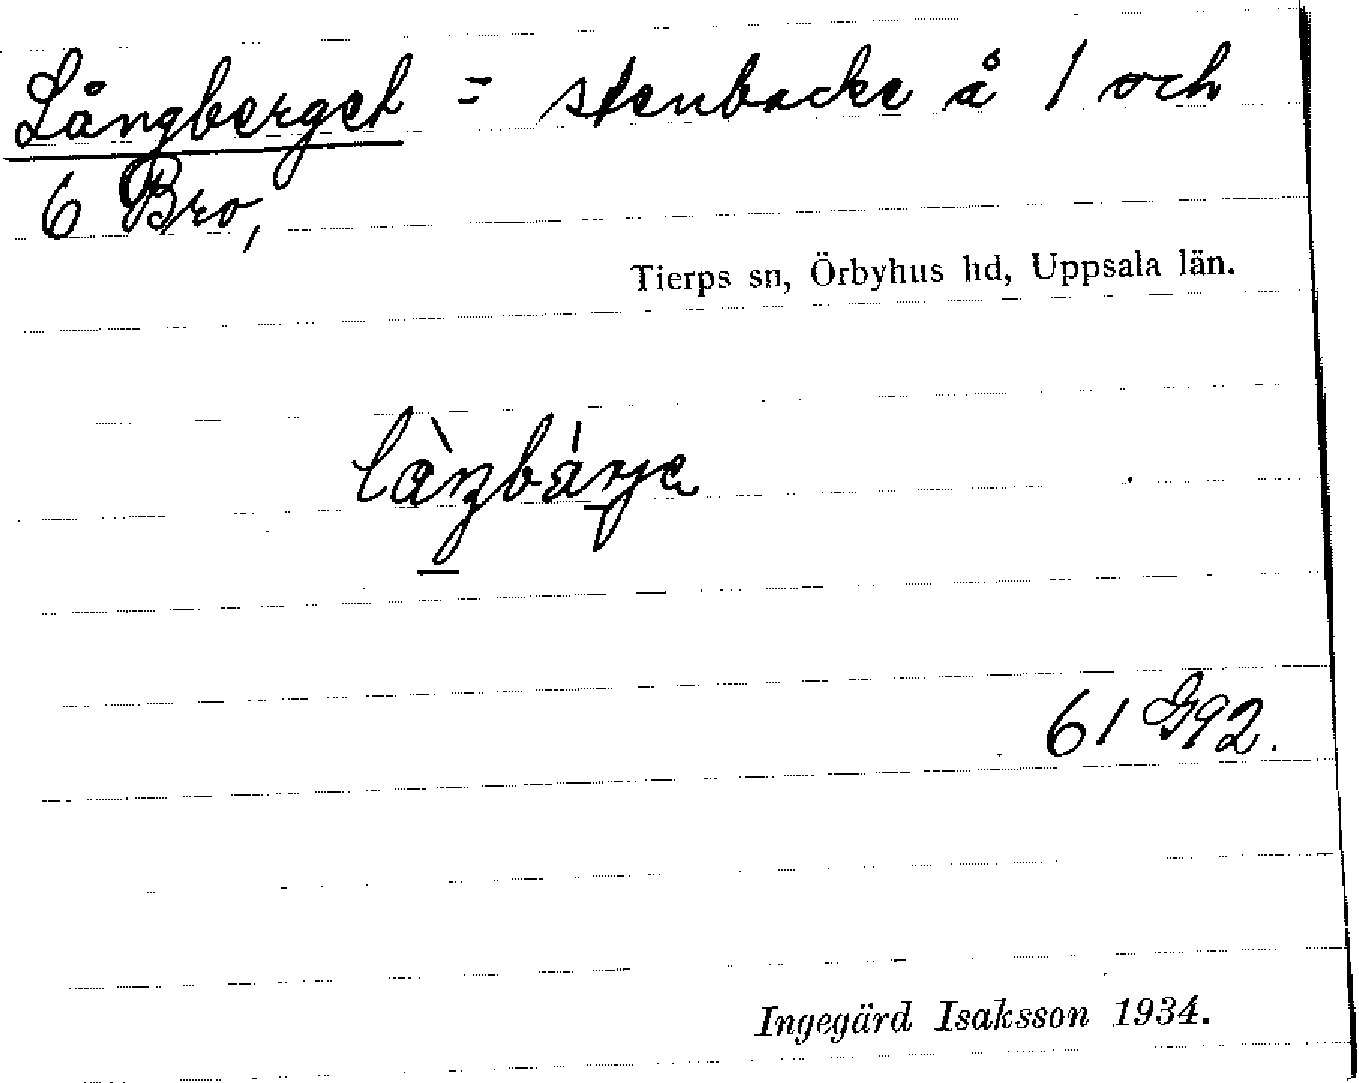 Långberget = stenbacke å 1 och
6 Bro,
Tierps sn, Örbyhus hd, Uppsala län.
61 G92.
Ingegärd Isaksson 1934.